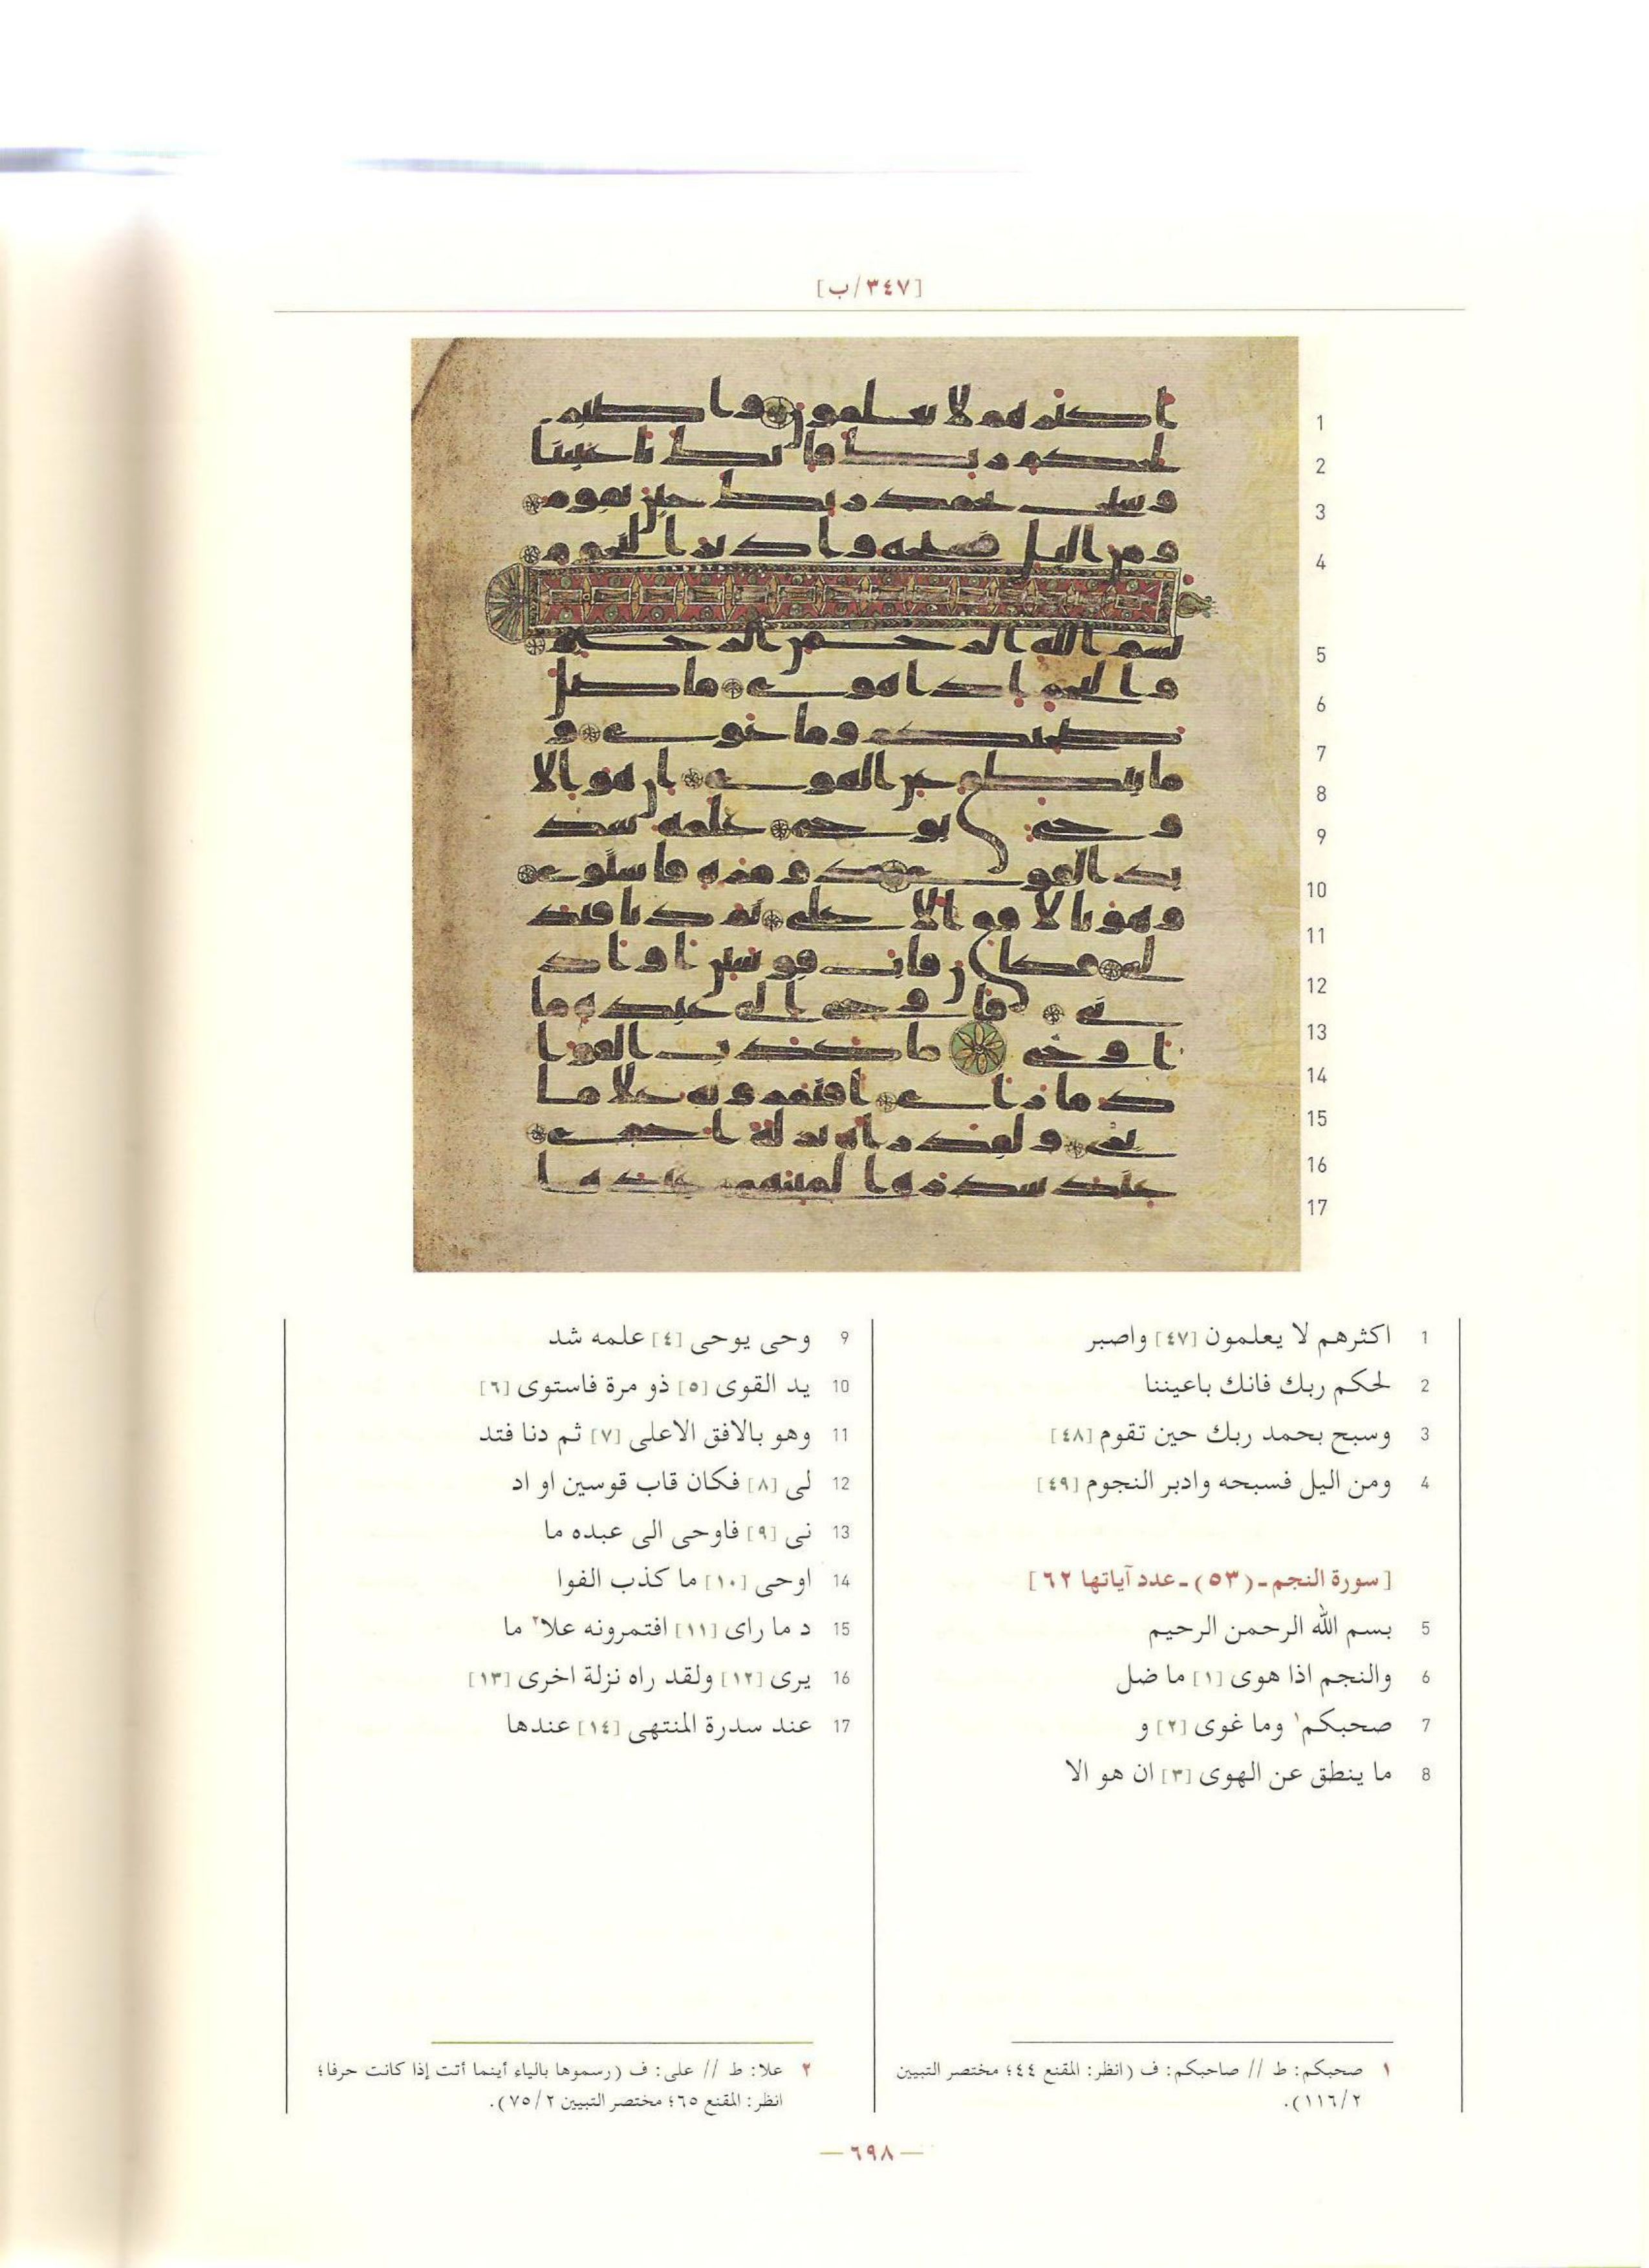 [٣٤٧/ب]
1 اكثرهم لا يعلمون [٤٧] واصبر
2 لحكم ربك فانك باعيننا
3 وسبح بحمد ربك حين تقوم [٤٨]
4 ومن اليل فسبحه وادبر النجوم [٤٩]
[سورة النجم ـ (٥٣) ـ عدد آياتها ٦٢]
5 بسم الله الرحمن الرحيم
6 والنجم اذا هوى [١] ما ضل
7 صحبكم١ وما غوى [٢] و
8 ما ينطق عن الهوى [٣] ان هو الا
9 وحى يوحى [٤] علمه شد
10 يد القوى [٥] ذو مرة فاستوى [٦]
11 وهو بالافق الاعلى [٧] ثم دنا فتد
12 لى [٨] فكان قاب قوسين او اد
13 نى [٩] فاوحى الى عبده ما
14 اوحى [١٠] ما كذب الفوا
15 د ما راى [١١] افتمرونه علا٢ ما
16 يرى [١٢] ولقد راه نزلة اخرى [١٣]
17 عند سدرة المنتهى [١٤] عندها
١ صحبكم: ط // صاحبكم: ف (انظر: المقنع ٤٤؛ مختصر التبيين
١١٦/٢).
٢ علا: ط // على: ف (رسموها بالياء أينما أتت إذا كانت حرفا؛
انظر: المقنع ٦٥؛ مختصر التبيين ٧٥/٢).
— ٦٩٨ —